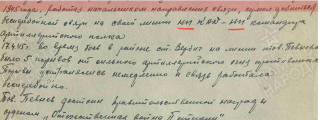 1945 года, работая начальником направления связи, сумел добиться
бесперебойной связи на овсей линии НП КАД - НП командира
артиллерийского полка
17.4.45 во время боя в районе от. Вербиг на линии тов. Певнева
было 5 порывов от сильного артиллерийского огня противника
Порывы устранялись немедленно и связь работала
бесперебойно.
Тов. Певнев достоин правительственной награды
орденом „Отечественная война II степени"